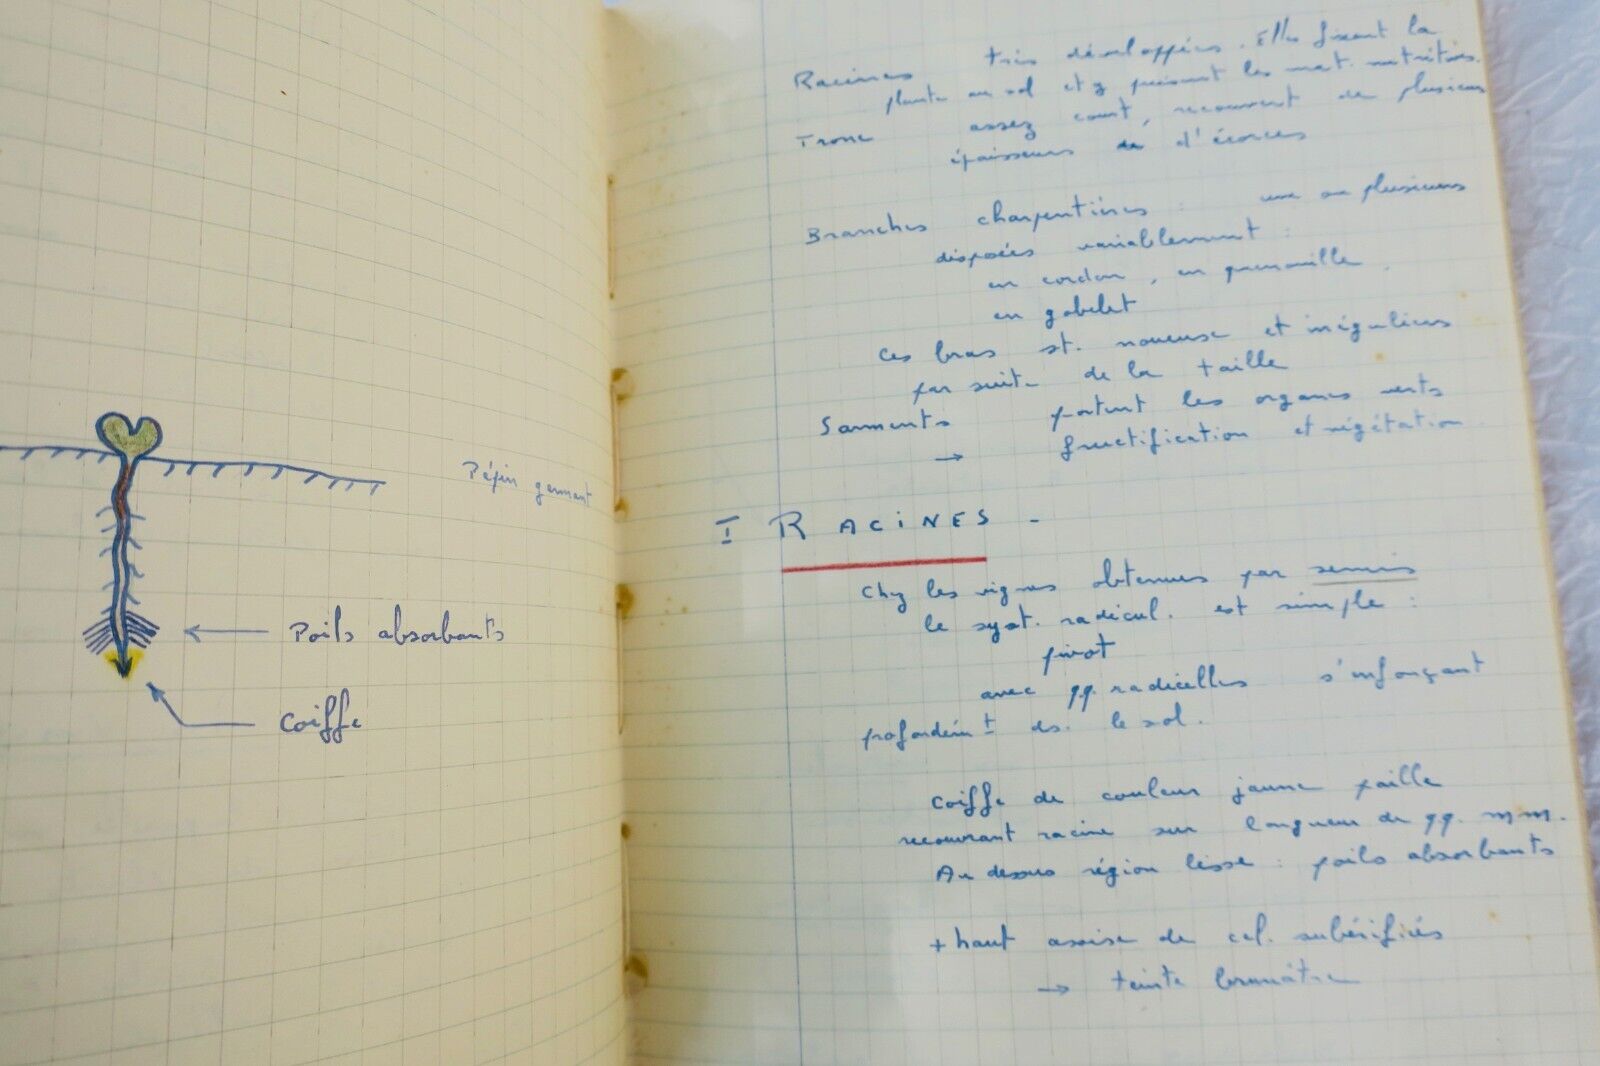 Pépin germant
Poils absorbants
Coiffe
Racines très développées. Elles fixent la
plante au sol et y puisent les mat. nutritives.
Tronc assez court, recouvert de plusieurs
épaisseurs de d'écorces
Branches charpentières : une ou plusieurs
disposées variablement :
en cordon, en quenouille,
en gobelet
Ces bras st. noueux et irréguliers
par suite de la taille
Sarments portent les organes verts
→ fructification et végétation
I RACINES -
Chez les vignes obtenues par semis
le syst. radicul. est simple :
pivot
avec qq. radicelles s'enfonçant
profondémt ds. le sol.
Coiffe de couleur jaune paille
recouvrant racine sur longueur de qq. mm.
Au dessus région lisse : poils absorbants
+ haut assise de cel. subérifiés
→ teinte brunâtre